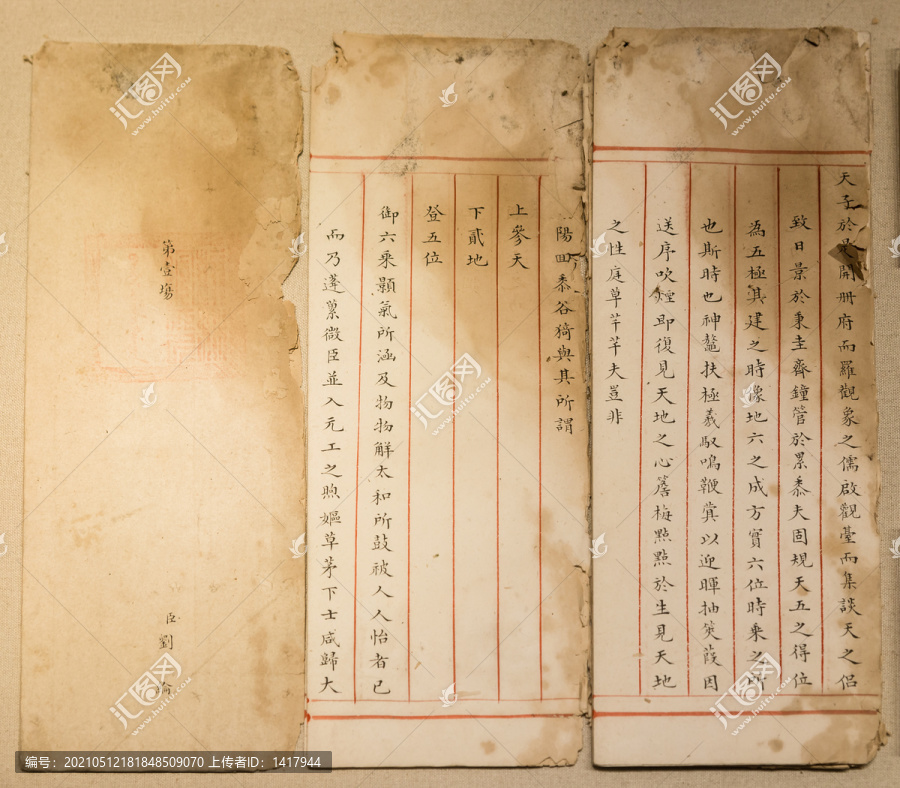 天子於是開冊府而羅觀象之儒啟觀臺而集談天之侶
致日景於秉圭齊鐘管於累黍夫固規天五之得位
為五極其建之時像地六之成方實六位時乘之所
也斯時也神鼇扶極羲馭鳴鞭蓂以迎暉抽莢葭因
送序吹煙即復見天地之心簷梅點點於生見天地
之性庭草芊芊夫豈非
陽回黍谷猗與其所謂
上參天
下貳地
登五位
御六乘顥氣所涵及物物觧太和所鼓被人人怡者已
而乃蓬藁微臣並入元工之煦嫗草茅下士咸歸大
第壹場
臣劉
汇图网
www.huitu.com
编号：20210512181848509070 上传者ID：1417944